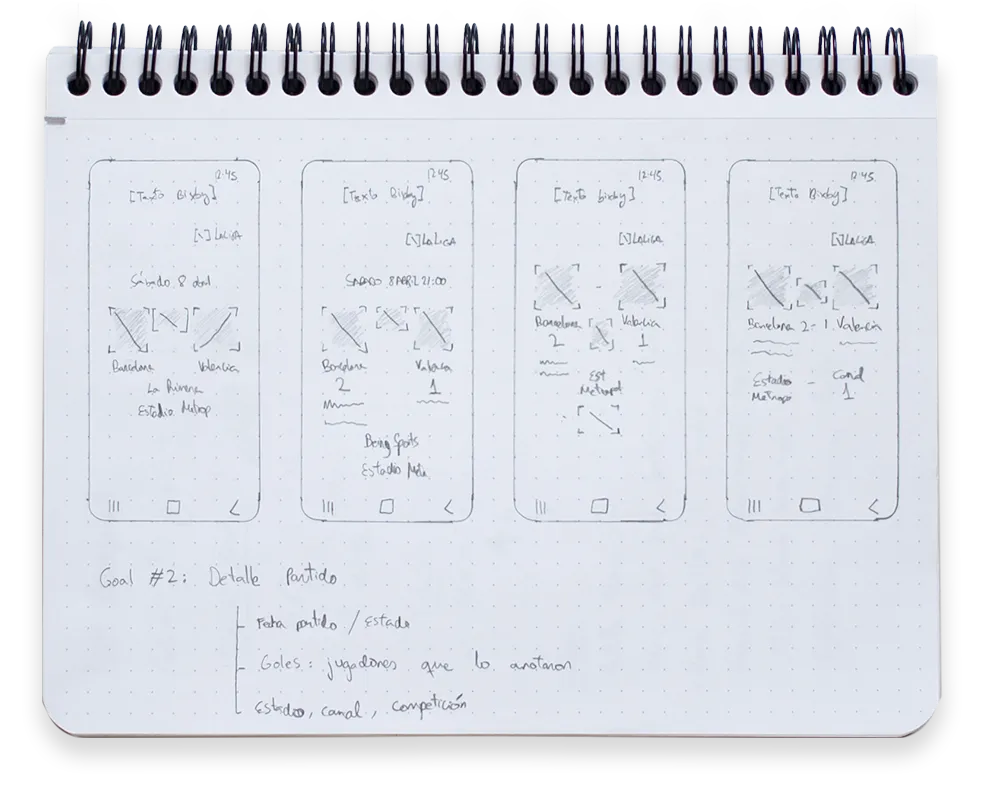 12:45
[Texto Bixby]
[\] LALIGA
Sábado 8 abril
Barcelona Valencia
La Primera
Estadio Metrop
12:45
[Texto Bixby]
[\] LALIGA
SABADO 8 ABRIL 21:00
Barcelona Valencia
2 1
Being Sports
Estadio Metr.
12:45
[Texto bixby]
[\] LALIGA
-
Barcelona Valencia
2 1
Est
Metropol
12:45
[Texto Bixby]
[\] LALIGA
Barcelona 2 - 1 Valencia
Estadio - Canal
Metropo 1
Goal #2: Detalle Partido
Fecha partido / Estado
Goles: jugadores que lo anotaron
Estadio, canal, competición